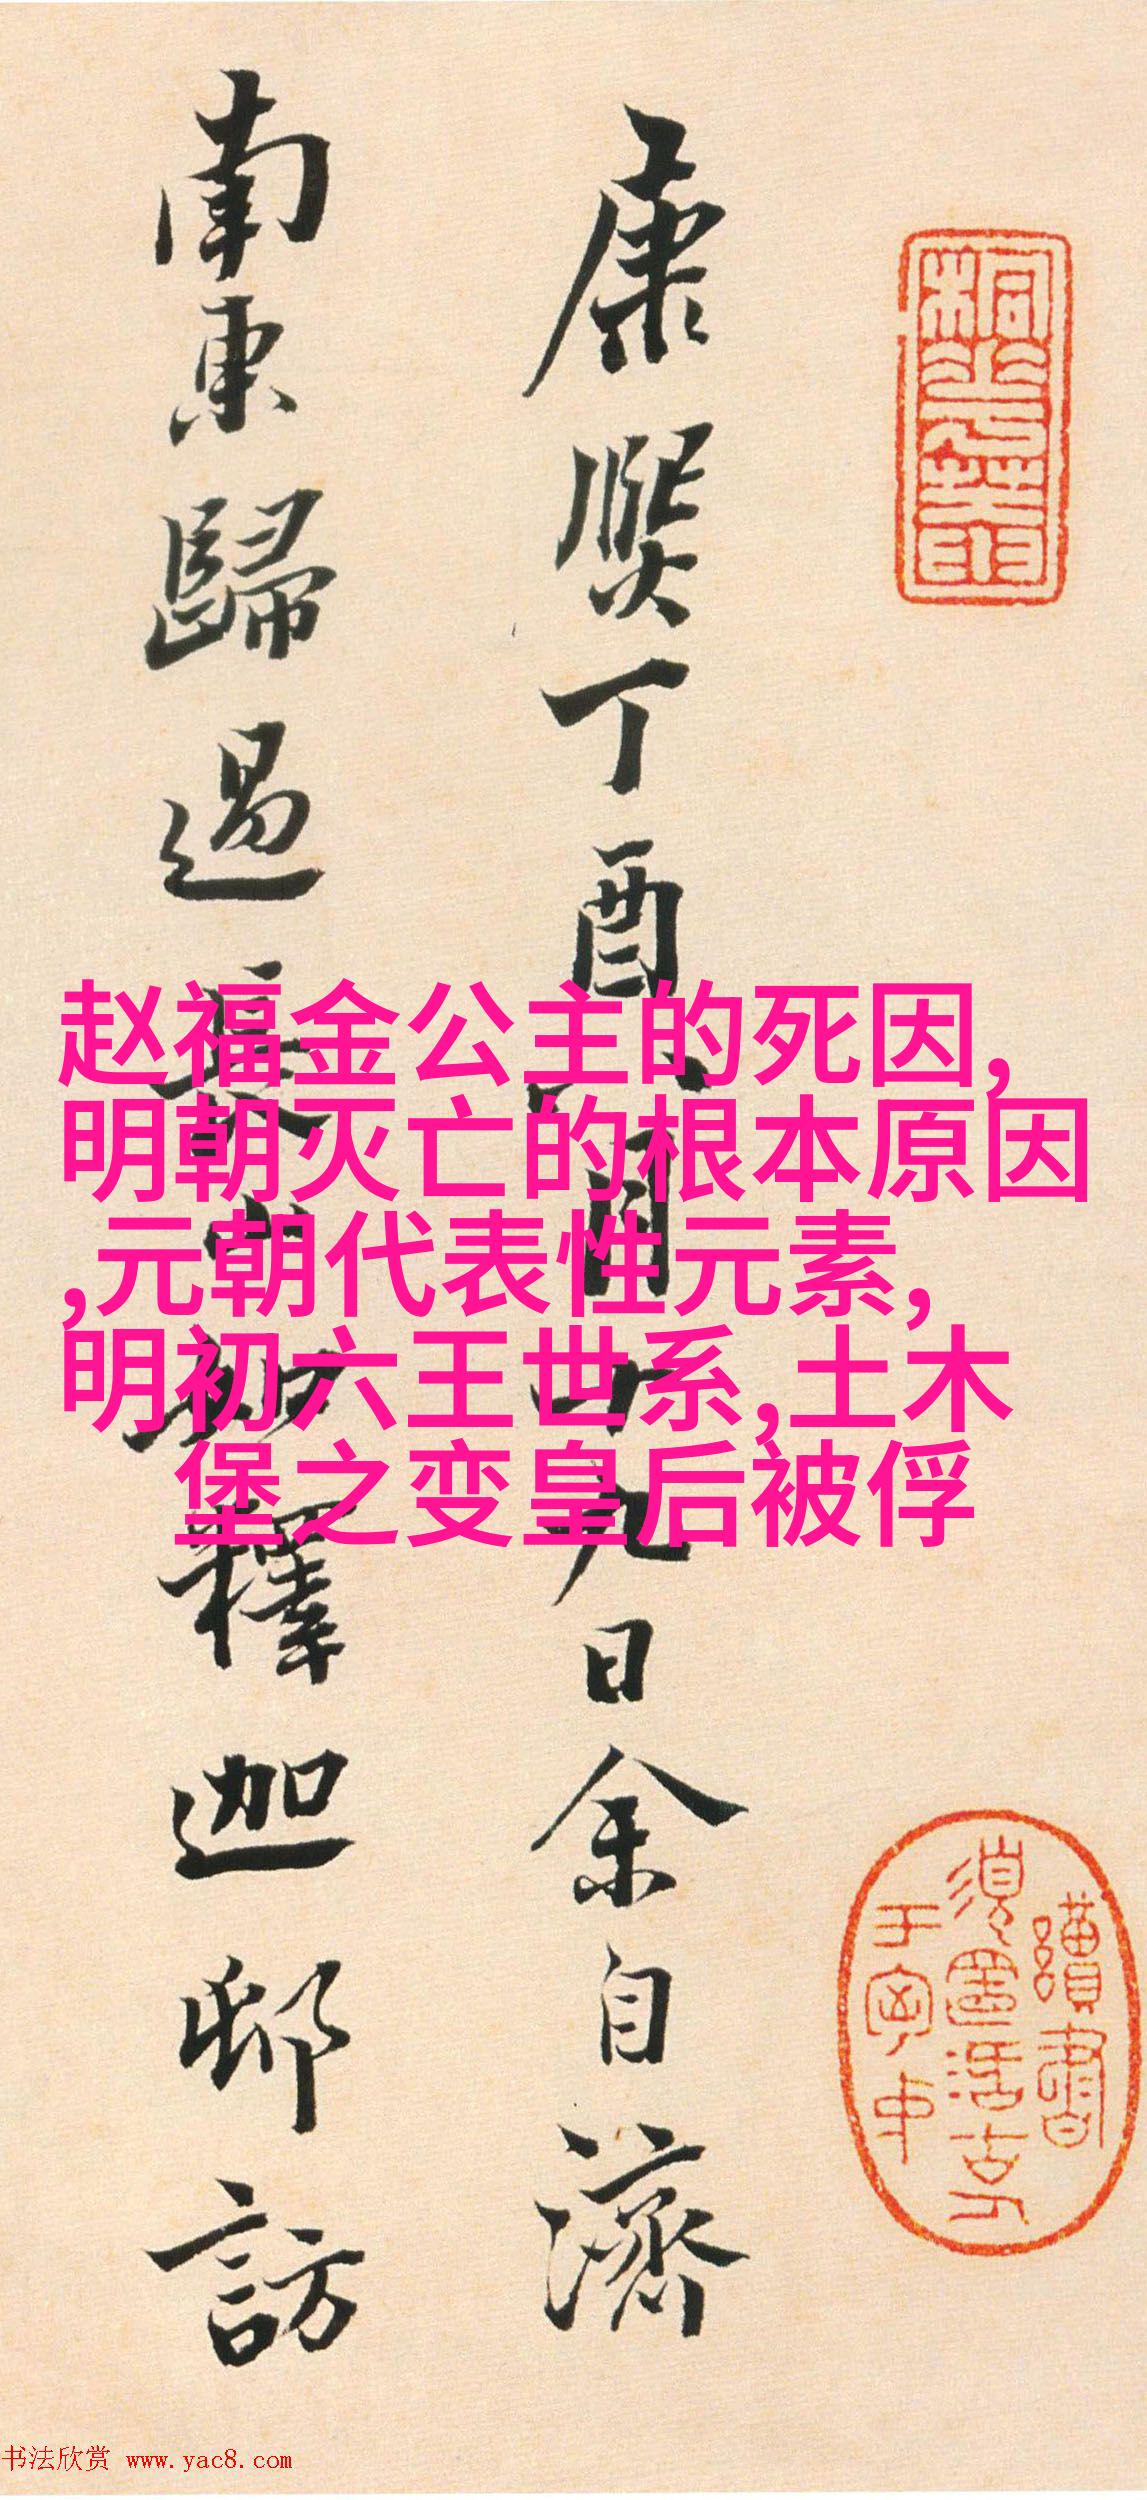 康熙丁酉八月十九日余自濟
南東歸過長山初釋迦邨訪
赵福金公主的死因,
明朝灭亡的根本原因
,元朝代表性元素,
明初六王世系,土木
堡之变皇后被俘
书法欣赏 www.yac8.com